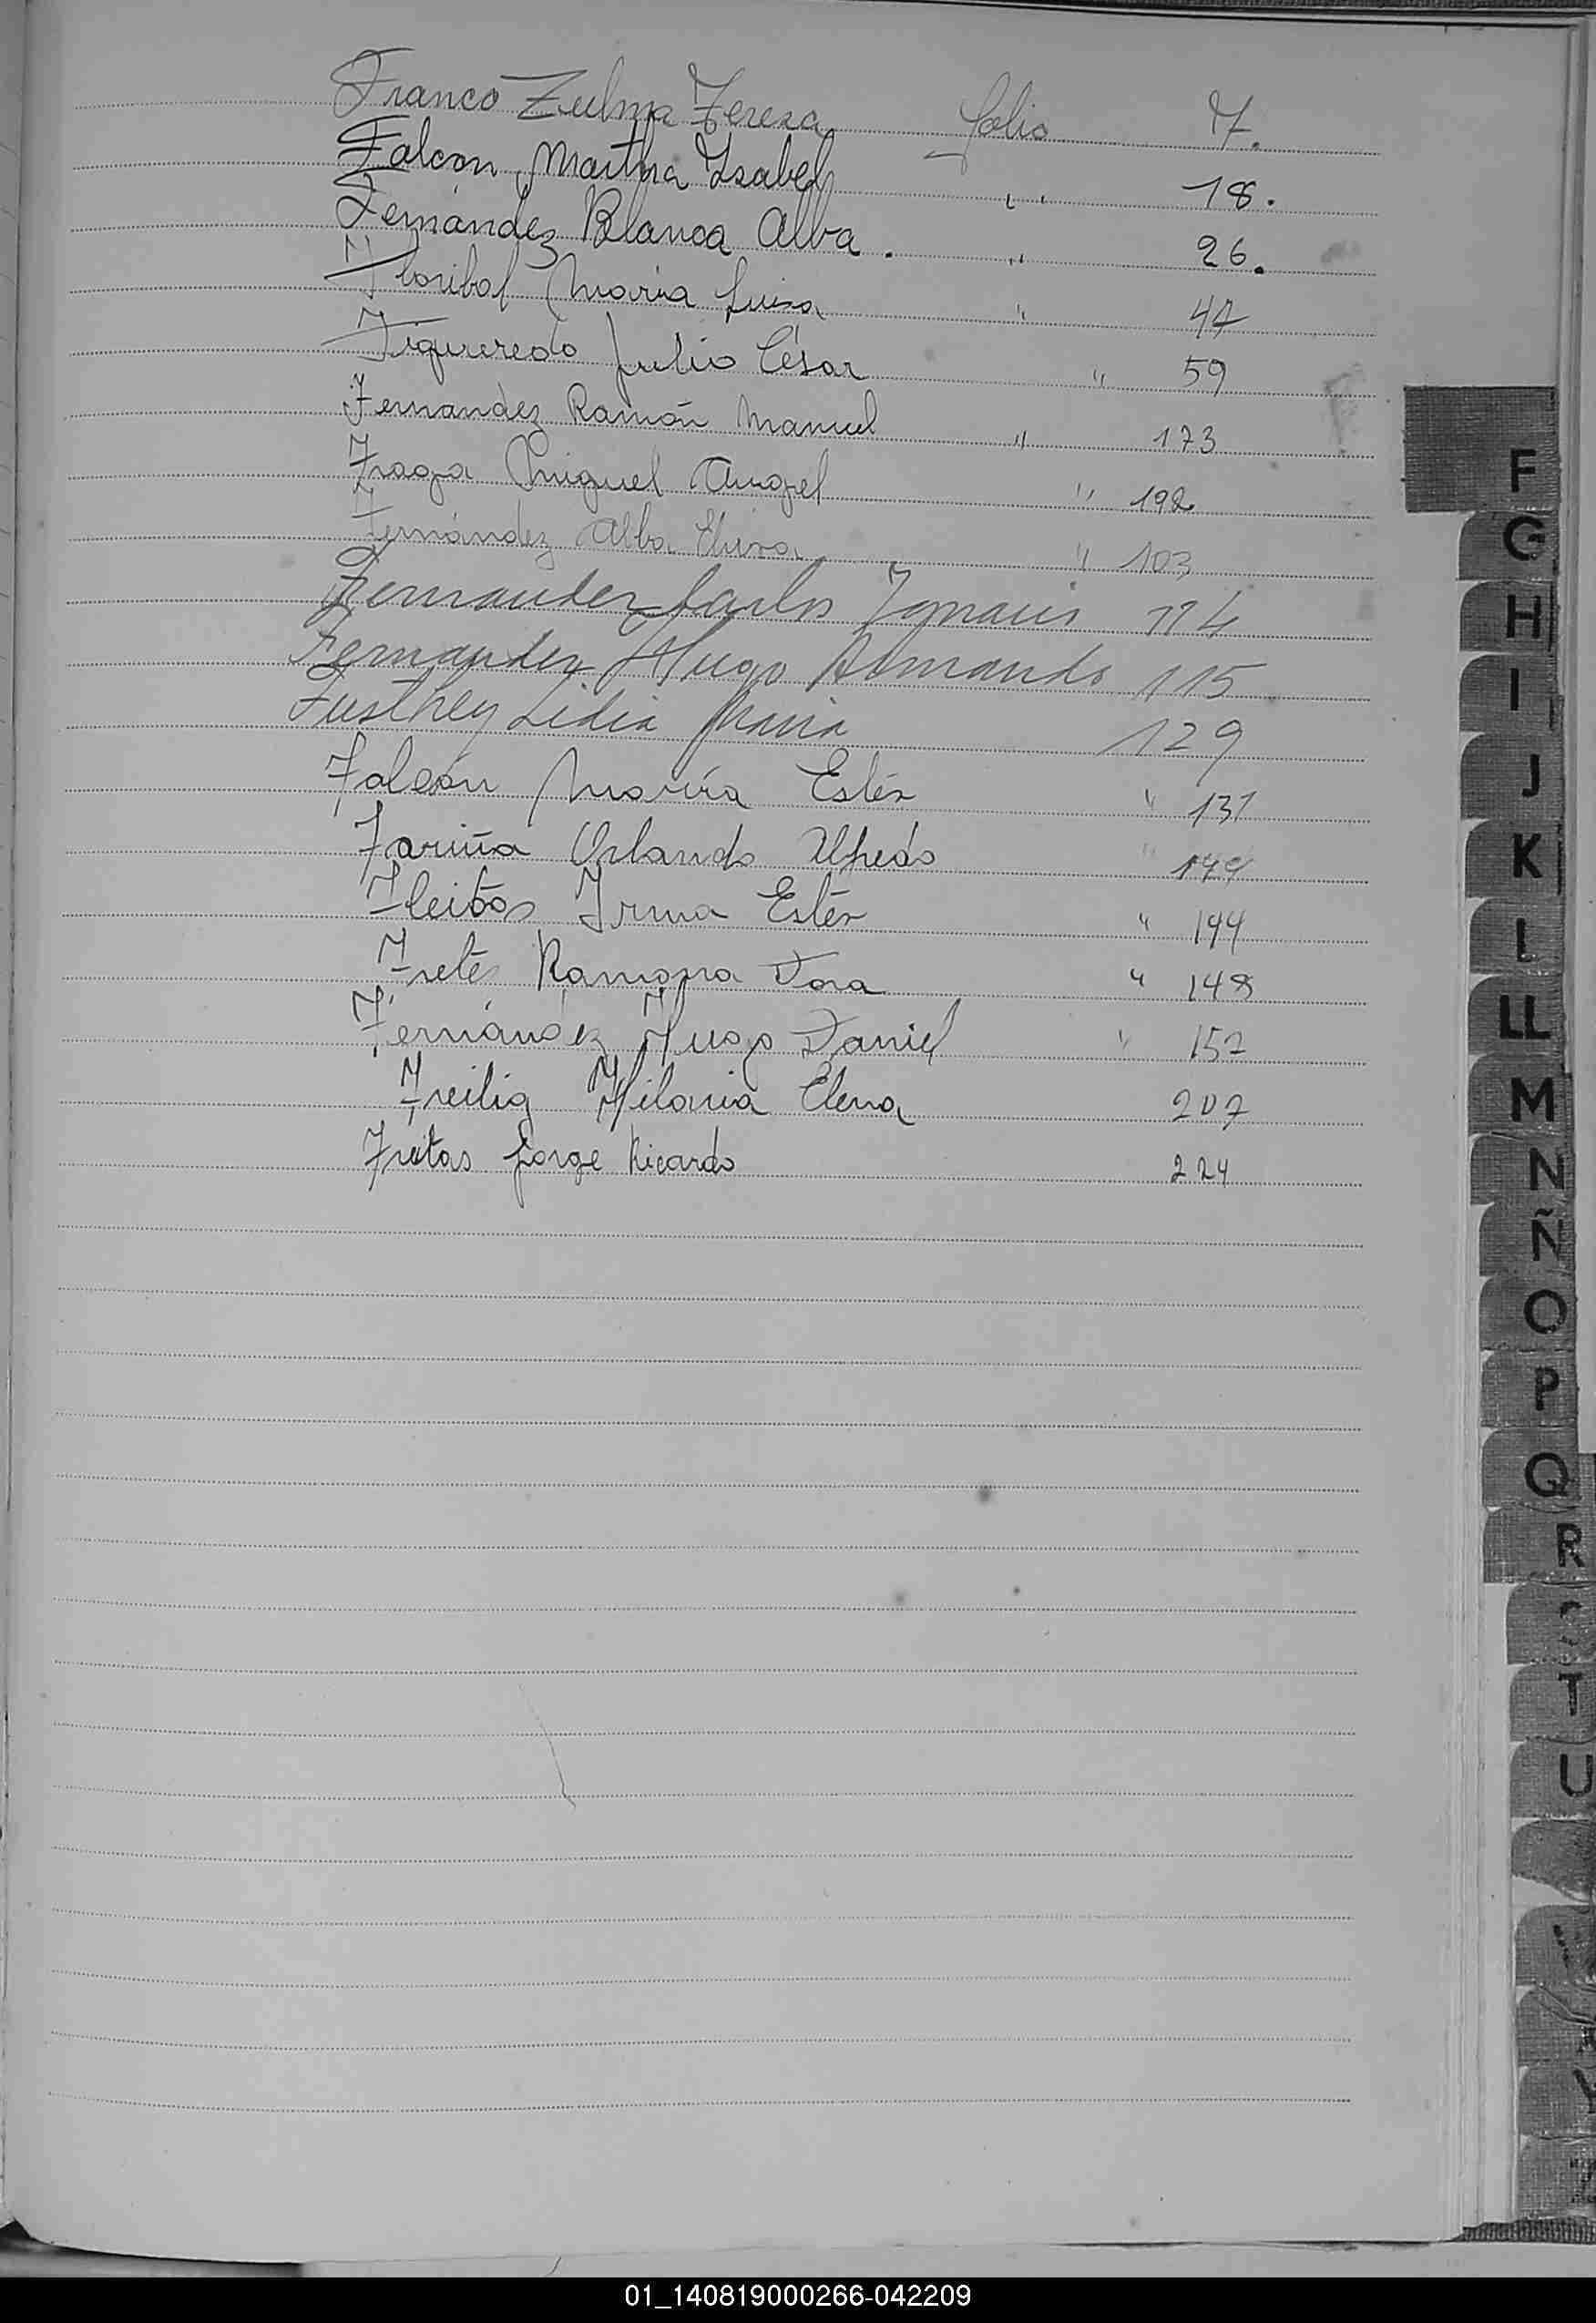 Franco Zulma Tereza folio 7.
Falcon, Martha Isabel " 18.
Fernández Blanca Alba. " 26.
Floribal Maria Luisa " 47
Figueredo Julio César " 59
Fernandez Ramón Manuel " 173
Fraga Miguel Angel " 192
Fernández Alba Elvira " 103
Fernandez Carlos Ignacio 114
Fernandez Hugo Armando 115
Fusthey Lidia Maria 129
Falcón María Estér " 131
Fariña Orlando Alfredo "
Fleitas Irma Estér " 144
Fretes Ramona Dora " 148
Fernández Hugo Daniel " 152
Freilig Hilaria Elena 207
Freitas Jorge Ricardo 224
F
G
H
I
J
K
L
LL
M
N
Ñ
O
P
Q
R
T
U
01_140819000266-042209